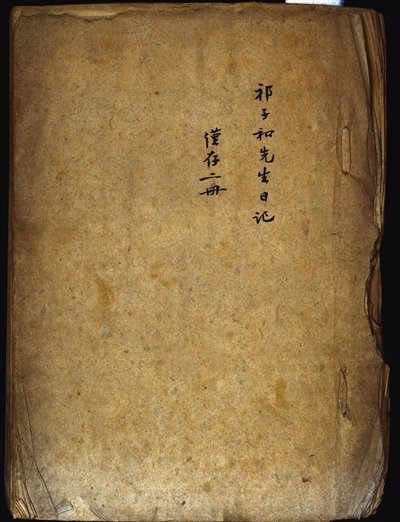 祁子和先生日记
僅存二冊